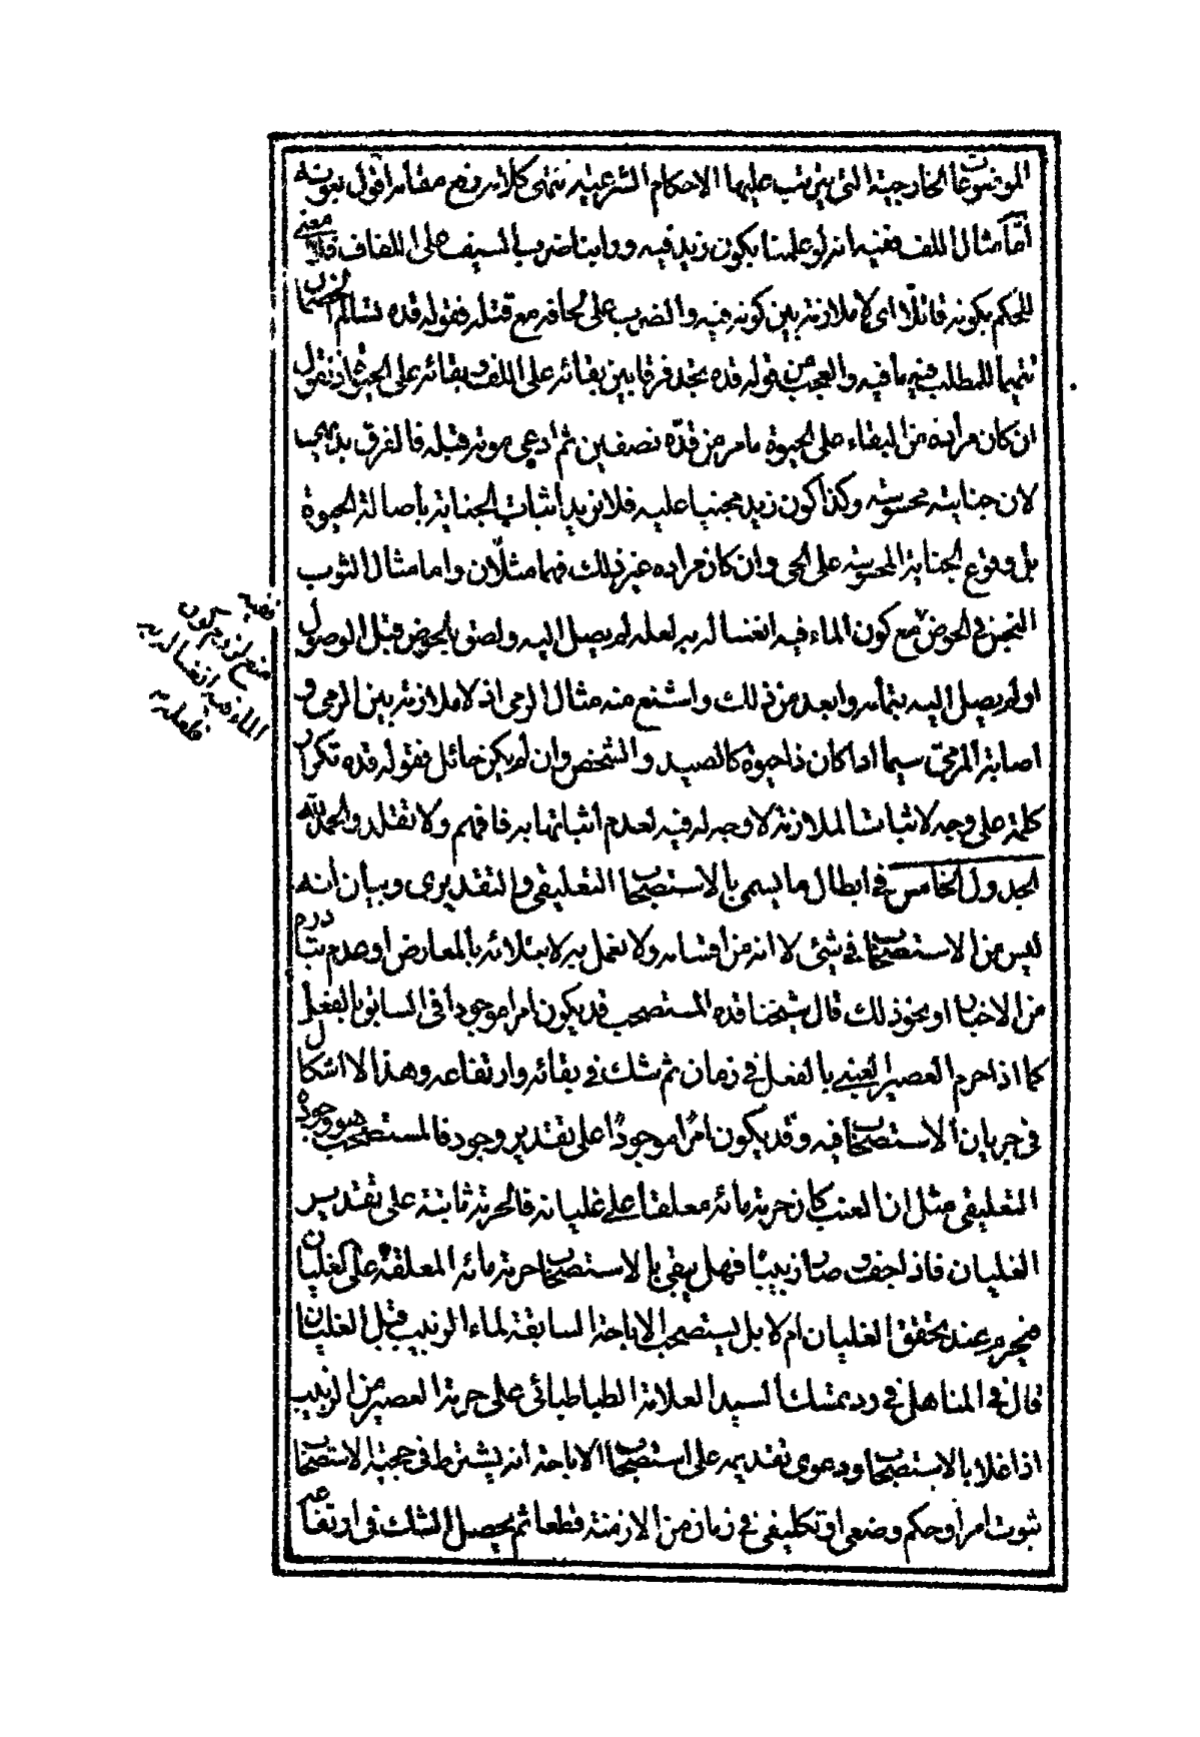 الموضوعات الخارجية التي يترتب عليها الاحكام الشرعية انتهى كلامه رفع مقامه اقول بعونه
امّا مثال اللف ففيه انه لو علمنا بكون زيد فيه وراينا ضرب السيف على اللفاف فلا معنى
للحكم بكونه قاتلا اى لا ملازمة بين كونه فيه والضرب على لحافه مع قتله فقوله قده نسالم الخصمان
تتميما للمطلب فيه ما فيه والعجب من قوله قده يجد فرقا بين بقائه على اللف وبقائه على الحيوة اذ نقول
ان كان مراده من البقاء على الحيوة ما مر من قدّه نصفين ثم ادعى موته قبله فالفرق بديهى
لان جنايته محسوسة وكذا كون زيد مجنيا عليه فلا نريد اثبات الجناية باصالة الحيوة
بل وقوع الجناية المحسوسة على الحى وان كان مراده غير ذلك فهما مثلان واما مثال الثوب
النجس في الحوض مع كون الماء فيه انغساله به لعله لم يصل اليه ولصق بالحوض قبل الوصول
او لم يصل اليه بتمامه وابعد من ذلك واشنع منه مثال الرمى اذ لا ملازمة بين الرمى و
اصابة المرمىّ سيما اذا كان ذا حيوة كالصيد والشخص وان لم يكن حائل فقوله قده تكرار
كلمة على وجه لاثبات الملازمة لا وجه له فيه لعدم اثباتها به فافهم ولا تقلد والحمد لله
الجدول الخامس في ابطال ما يسمى بالاستصحاب التعليقى والتقديرى وبيان انه
ليس من الاستصحاب في شئ لا انه من اقسامه ولا نعمل به لابتلائه بالمعارض او عدم تبادره
من الاخبار او نحو ذلك قال شيخنا قده المستصحب قد يكون امرا موجودا في السابق بالفعل
كما اذا حرم العصير العنبى بالفعل في زمان ثم شك في بقائه وارتفاعه وهذا لا اشكال
في جريان الاستصحاب فيه وقد يكون امرا موجودا على تقدير وجود فالمستصحب هو وجوده
التعليقى مثل ان العنب كان حرمة مائه معلقا على غليانه فالحرمة ثابتة على تقدير
الغليان فاذا جف وصار زبيبا فهل يبقى بالاستصحاب حرمة مائه المعلقة على الغليان
فيحرم عند تحقق الغليان ام لا بل يستصحب الاباحة السابقة لماء الزبيب قبل الغليان
قال في المناهل في رد تمسك السيد العلامة الطباطبائى على حرمة العصير من الزبيب
اذا غلا بالاستصحاب ودعوى تقديمه على استصحاب الاباحة انه يشترط في حجية الاستصحاب
ثبوت امر او حكم وضعى او تكليفى في زمان من الازمنة قطعا ثم يحصل الشك في ارتفاعه
ففيه
منع لزوم كون
الماء فيه انغساله به
فلعله